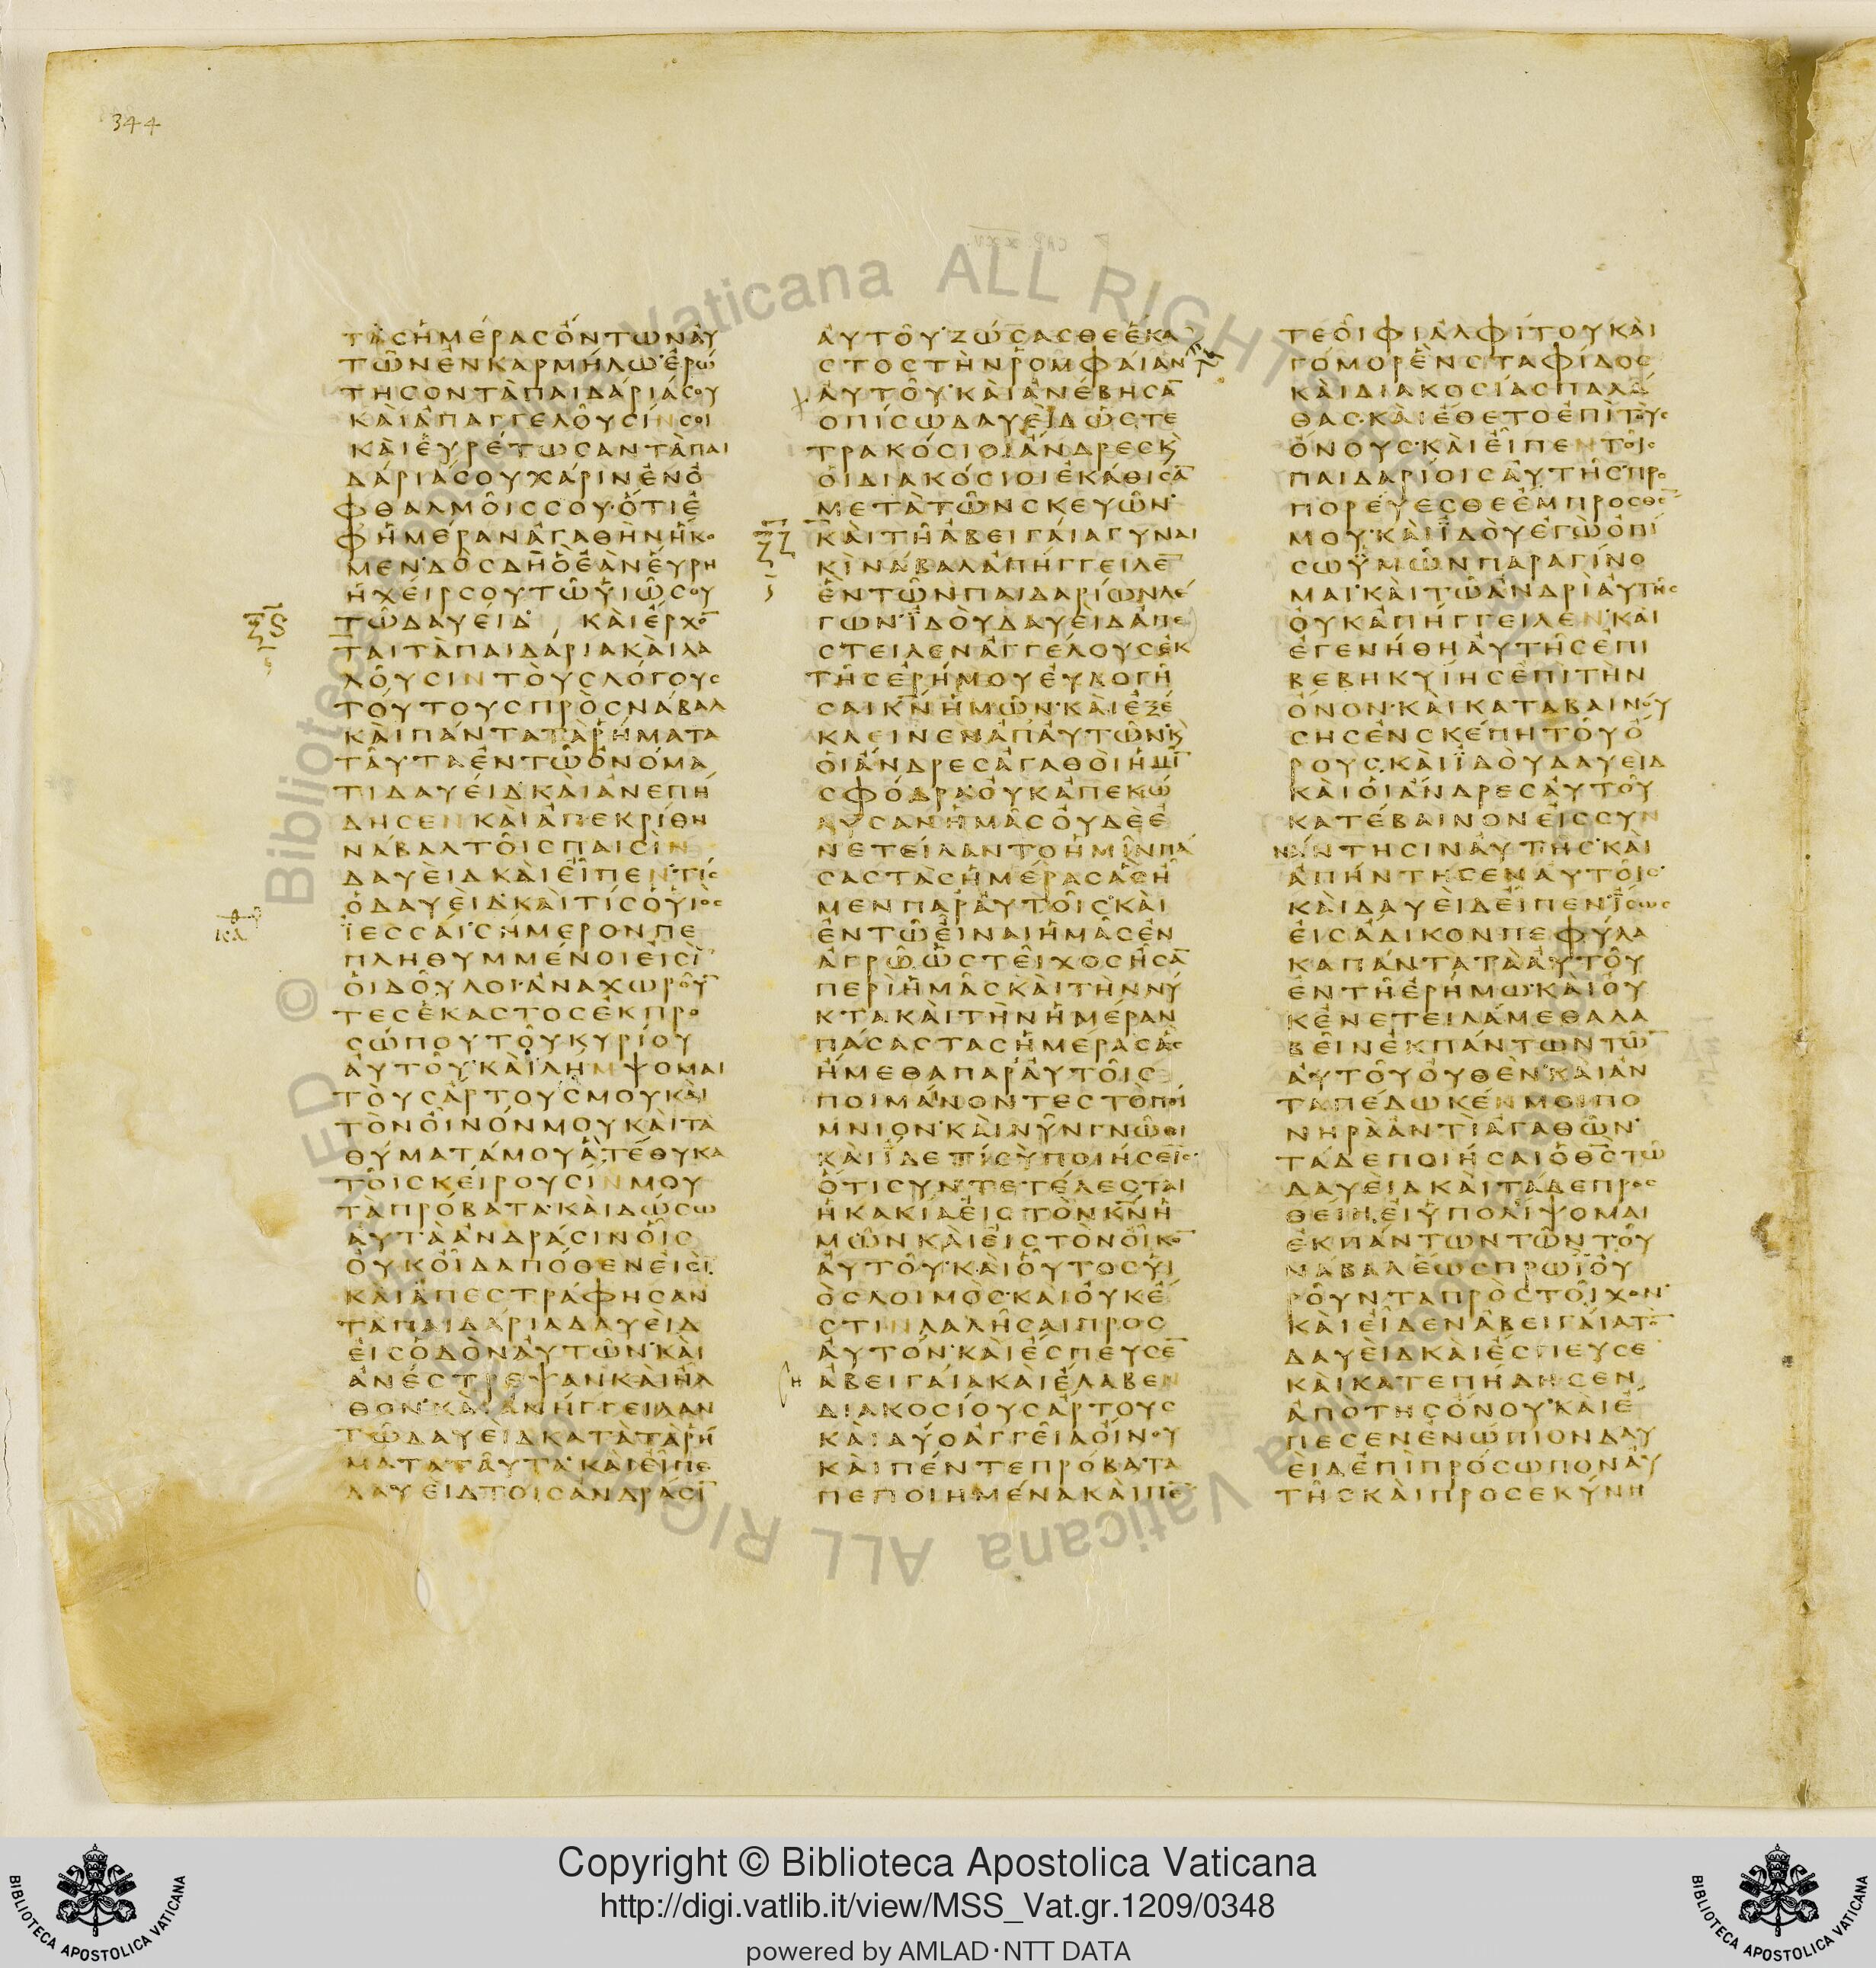 344
ΤὰΣἩΜΈΡΑΣὌΝΤΩΝΑΥ
ΤΩ͂ΝἘΝΚΑΡΜΉΛΩ·ἘΡΏ
ΤΗΣΟΝΤᾺΠΑΙΔΆΡΙΆΣΟΥ
ΚΑῚἈΠΑΓΓΕΛΟΥ͂ΣΊΝΣΟΙ
ΚΑῚΕὙΡΈΤΩΣΑΝΤᾺΠΑΙ
ΔΆΡΙΆΣΟΥΧΆΡΙΝἘΝὈ
ΦΘΑΛΜΟΙ͂ΣΣΟΥ·ὍΤΙἘ
ΦἩΜΈΡΑΝἈΓΑΘῊΝἭΚΟ
ΜΕΝ·ΔῸΣΔῊὋἘᾺΝΕὝΡΗ
ἩΧΕΊΡΣΟΥΤΩ͂ΥἹΩ͂ΣΟΥ
ΤΩ͂ΔΑΥΕΊΔ· ΚΑῚἜΡΧΟ̅
ΤΑΙΤᾺΠΑΙΔΆΡΙΑΚΑῚΛΑ
ΛΟΥ͂ΣΙΝΤΟῪΣΛΌΓΟΥΣ
ΤΟΎΤΟΥΣΠΡῸΣΝΆΒΑΛ
ΚΑῚΠΆΝΤΑΤᾺῬΉΜΑΤΑ
ΤΑΥ͂ΤΑἘΝΤΩ͂ὈΝΌΜΑ
ΤΙΔΑΥΕΊΔ·ΚΑῚἈΝΕΠΉ
ΔΗΣΕΝΚΑῚἈΠΕΚΡΊΘΗ
ΝΑΒΑΛΤΟΙ͂ΣΠΑΙΣῚΝ
ΔΑΥΕῚΔΚΑῚΕἾΠΕΝ·ΤΊΣ
ὉΔΑΥΕΊΔ·ΚΑῚΤΊΣὉΥἹῸΣ
ἸΕΣΣΑΊ·ΣΉΜΕΡΟΝΠΕ
ΠΛΗΘΥΜΜΈΝΟΙΕἸΣῚ̅
ΟἹΔΟΥ͂ΛΟΙ·ἈΝΑΧΩΡΟΥ͂̅
ΤΕΣἝΚΑΣΤΟΣἘΚΠΡΟ
ΣΏΠΟΥΤΟΥ͂ΚΥΡΊΟΥ
ΑὙΤΟΥ͂·ΚΑῚΛΗΜΨΟΜΑΙ
ΤΟῪΣἌΡΤΟΥΣΜΟΥΚΑῚ
ΤῸΝΟἾΝΌΝΜΟΥΚΑῚΤᾺ
ΘΎΜΑΤΆΜΟΥἋΤΈΘΥΚΑ
ΤΟΙ͂ΣΚΕΊΡΟΥΣΊΝΜΟΥ
ΤᾺΠΡΌΒΑΤΑ·ΚΑῚΔΏΣΩ
ΑΥΤᾺἈΝΔΡΆΣΙΝΟἿΣ
ΟΥΚΟἾΔΑΠΌΘΕΝΕἸΣῚ̅
ΚΑῚἈΠΕΣΤΡΆΦΗΣΑΝ
ΤᾺΠΑΙΔΆΡΙΑΔΑΥΕῚΔ
ΕἸΣὉΔῸΝΑΥΤΩ͂Ν·ΚΑῚ
ἈΝΈΣΤΡΕΨΑΝΚΑῚἮΛ
ΘΟΝ·ΚΑῚἈΝΉΓΓΕΙΛΑΝ
ΤΩ͂ΔΑΥΕῚΔΚΑΤᾺΤᾺῬΉ
ΜΑΤΑΤΑΥ͂ΤΑ·ΚΑῚΕἾΠΕ
ΔΑΥΕῚΔΤΟΙ͂ΣἈΝΔΡΆΣῚ̅
ΑΥΤΟΥ͂·ΖΏΣΑΣΘΕἝΚΑ
ΣΤΟΣΤῊΝῬΟΜΦΑΊΑΝ
ΑΥΤΟΥ͂·ΚΑῚἈΝΈΒΗΣΑ̅
ΟΠΊΣΩΔΑΥΕῚΔΩΣΤΕ
ΤΡΑΚΌΣΙΟΙἌΝΔΡΕΣΚ
ΟἹΔΙΑΚΌΣΙΟΙἘΚΆΘΙΣΑ̅
ΜΕΤᾺΤΩ͂ΝΣΚΕΥΩ͂Ν·
ΚΑῚΤΗ͂ἈΒΕΙΓΑΊΑΓΥΝΑΙ
ΚῚΝΆΒΑΛἈΠΉΓΓΕΙΛΕ̅
ἛΝΤΩ͂ΝΠΑΙΔΑΡΊΩΝΛΈ
ΓΩΝ·ἸΔΟῪΔΑΥΕῚΔἈΠΕ
ΣΤΕΙΛΕΝἈΓΓΈΛΟΥΣἘΚ
ΤΗ͂ΣἘΡΉΜΟΥΕΥΛΟΓΗ͂
ΣΑΙΚΝἩΜΩ͂Ν·ΚΑῚἘΞΈ
ΚΛΕΙΝΕΝἈΠΑΥΤΩ͂Ν·Κ
ΟἹἌΝΔΡΕΣἈΓΑΘΟῚἩΜΙ̅
ΣΦΌΔΡΑ·ΟΥΚἈΠΕΚΏ
ΛΥΣΑΝἩΜΑ͂ΣΟΥΔΈἘ
ΝΕΤΕΙΛΑΝΤΟἩΜΙ͂ΝΠΆ
ΣΑΣΤᾺΣἩΜΈΡΑΣἋΣἮ
ΜΕΝΠΑΡΑΥΤΟΙ͂Σ·ΚΑῚ
ἘΝΤΩ͂ΕἾΝΑΙἩΜΑ͂ΣἘΝ
ἈΓΡΩ͂ΩΣΤΕΙ͂ΧΟΣἮΣΑ̅
ΠΕΡῚἩΜΑ͂ΣΚΑῚΤῊΝΝΎ
ΚΤΑΚΑῚΤῊΝἩΜΈΡΑΝ
ΠΆΣΑΣΤᾺΣἩΜΈΡΑΣἋΣ
ἬΜΕΘΑΠΑΡΑΥΤΟΙ͂Σ
ΠΟΙΜΑΊΝΟΝΤΕΣΤῸΠΟΊ
ΜΝΙΟΝ·ΚΑῚΝΥ͂ΝΓΝΩ͂ΘΙ
ΚΑῚἼΔΕΤΊΣῪΠΟΙΉΣΕΙΣ·
ὍΤΙΣΥΝΤΕΤΈΛΕΣΤΑΙ
ἩΚΑΚΊΑΕἸΣΤῸΝΚΝἩ
ΜΩ͂ΝΚΑῚΕἸΣΤῸΝΟἾΚΟ̅
ΑΥΤΟΥ͂·ΚΑῚΟΥΤΟΣΥἹ
ῸΣΛΟΙΜΌΣ·ΚΑῚΟΥΚΈ
ΣΤΙΝΛΑΛΗ͂ΣΑΙΠΡῸΣ
ΑΥΤΌΝ·ΚΑῚἜΣΠΕΥΣΕ̅
ἈΒΕΙΓΑΊΑΚΑῚἜΛΑΒΕΝ
ΔΙΑΚΟΣΊΟΥΣἌΡΤΟΥΣ
ΚΑῚΔΎΟἈΓΓΕΙ͂ΑΟἼΝΟΥ
ΚΑῚΠΈΝΤΕΠΡΌΒΑΤΑ
ΠΕΠΟΙΗΜΈΝΑΚΑῚΠΈ̅
ΤΕΟἸΦῚἈΛΦΊΤΟΥΚΑῚ
ΓΌΜΟΡἛΝΣΤΑΦΊΔΟΣ
ΚΑῚΔΙΑΚΟΣΊΑΣΠΑΛΆ
ΘΑΣ·ΚΑῚἜΘΕΤΟἘΠῚΤΟῪΣ
ὌΝΟΥΣ·ΚΑῚΕἾΠΕΝΤΟΙ͂Σ
ΠΑΙΔΑΡΊΟΙΣΑΥΤΗ͂Σ·ΠΡΟ
ΠΟΡΕΎΕΣΘΕἜΜΠΡΟΣΘΕ̅
ΜΟΥ·ΚΑῚἸΔΟῪἘΓΩὈΠΊ
ΣΩΥΜΩ͂ΝΠΑΡΑΓΊΝΟ
ΜΑΙ·ΚΑῚΤΩ͂ἈΝΔΡῚΑΥΤΗ͂Σ
ΟΥΚἈΠΉΓΓΕΙΛΕΝ·ΚΑῚ
ἘΓΕΝΉΘΗΑΥΤΗ͂ΣἘΠΙ
ΒΕΒΗΚΥΊΗΣἘΠῚΤῊΝ
ὌΝΟΝ·ΚΑῚΚΑΤΑΒΑΙΝΟΎ
ΣΗΣἘΝΣΚΈΠΗΤΟΥ͂Ὄ
ΡΟΥΣ·ΚΑῚἸΔΟῪΔΑΥΕῚΔ
ΚΑῚΟἹἌΝΔΡΕΣΑΥΤΟΥ͂
ΚΑΤΈΒΑΙΝΟΝΕἸΣΣΥΝ
ΝΆΝΤΗΣΙΝΑΥΤΗ͂Σ·ΚΑῚ
ἈΠΉΝΤΗΣΕΝΑΥΤΟΙ͂Σ·
ΚΑῚΔΑΥΕῚΔΕἾΠΕΝ·ἼΣΩΣ
ΕἸΣἌΔΙΚΟΝΠΕΦΎΛΑ
ΚΑΠΆΝΤΑΤᾺΑΥΤΟΥ͂
ἘΝΤΗ͂ἘΡΉΜΩ·ΚΑῚΟΥ
ΚἘΝΕΤΕΙΛΆΜΕΘΑΛΑ
ΒΕΙ͂ΝἘΚΠΆΝΤΩΝΤΩ͂̅
ΑΥΤΟΥ͂ΟΥΘΈΝ·ΚΑῚἈΝ
ΤΑΠΈΔΩΚΈΝΜΟΙΠΟ
ΝΗΡᾺἈΝΤῚἈΓΑΘΩ͂Ν·
ΤΆΔΕΠΟΙΉΣΑΙὉΘΣΤΩ͂
ΔΑΥΕῚΔΚΑῚΤΆΔΕΠΡΟΣ
ΘΕΊΗ,ΕἸΥΠΟΛΕΊΨΟΜΑΙ
ἘΚΠΆΝΤΩΝΤΩ͂ΝΤΟΥ͂
ΝΑΒΑΛἝΩΣΠΡΩῚΟΥ
ΡΟΥ͂ΝΤΑΠΡῸΣΤΟΙ͂ΧΟΝ·
ΚΑῚΕἾΔΕΝἈΒΕΙΓΑΊΑΤῸ̅
ΔΑΥΕῚΔΚΑῚἜΣΠΕΥΣΕ
ΚΑῚΚΑΤΕΠΉΔΗΣΕΝ
ἈΠῸΤΗΣὌΝΟΥ·ΚΑῚἜ
ΠΕΣΕΝἘΝΏΠΙΟΝΔΑΥ
ΕῚΔἘΠῚΠΡΌΣΩΠΟΝΑΥ
ΤΗ͂ΣΚΑῚΠΡΟΣΕΚΎΝΗ
Copyright © Biblioteca Apostolica Vaticana
http://digi.vatlib.it/view/MSS_Vat.gr.1209/0348
powered by AMLAD·NTT DATA
BIBLIOTECA APOSTOLICA VATICANA
BIBLIOTECA APOSTOLICA VATICANA